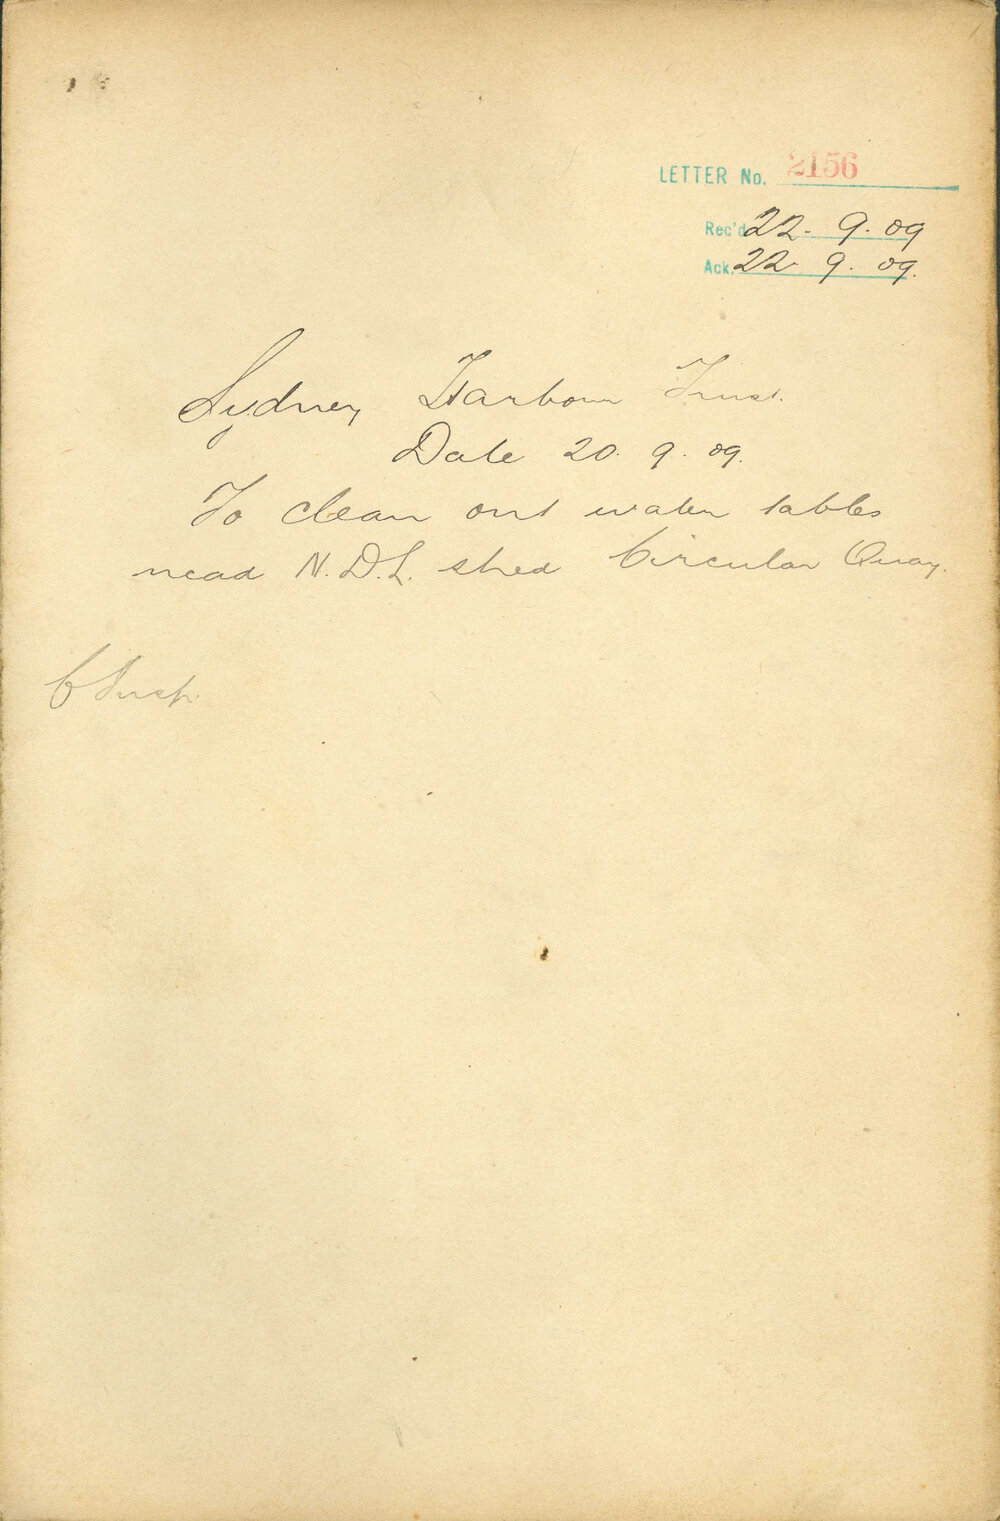 LETTER No. 2156
Rec'd 22. 9. 09
Ack. 22. 9. 09.
Sydney Harbour Trust.
Date 20. 9. 09.
To clean out water tables
nead N.D.L. shed Circular Quay.
C Insp.